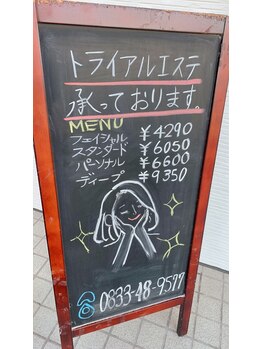 トライアルエステ
承っております。
MENU
フェイシャル ￥4290
スタンダード ￥6050
パーソナル ￥6600
ディープ ￥9350
☎ 0833-48-9577